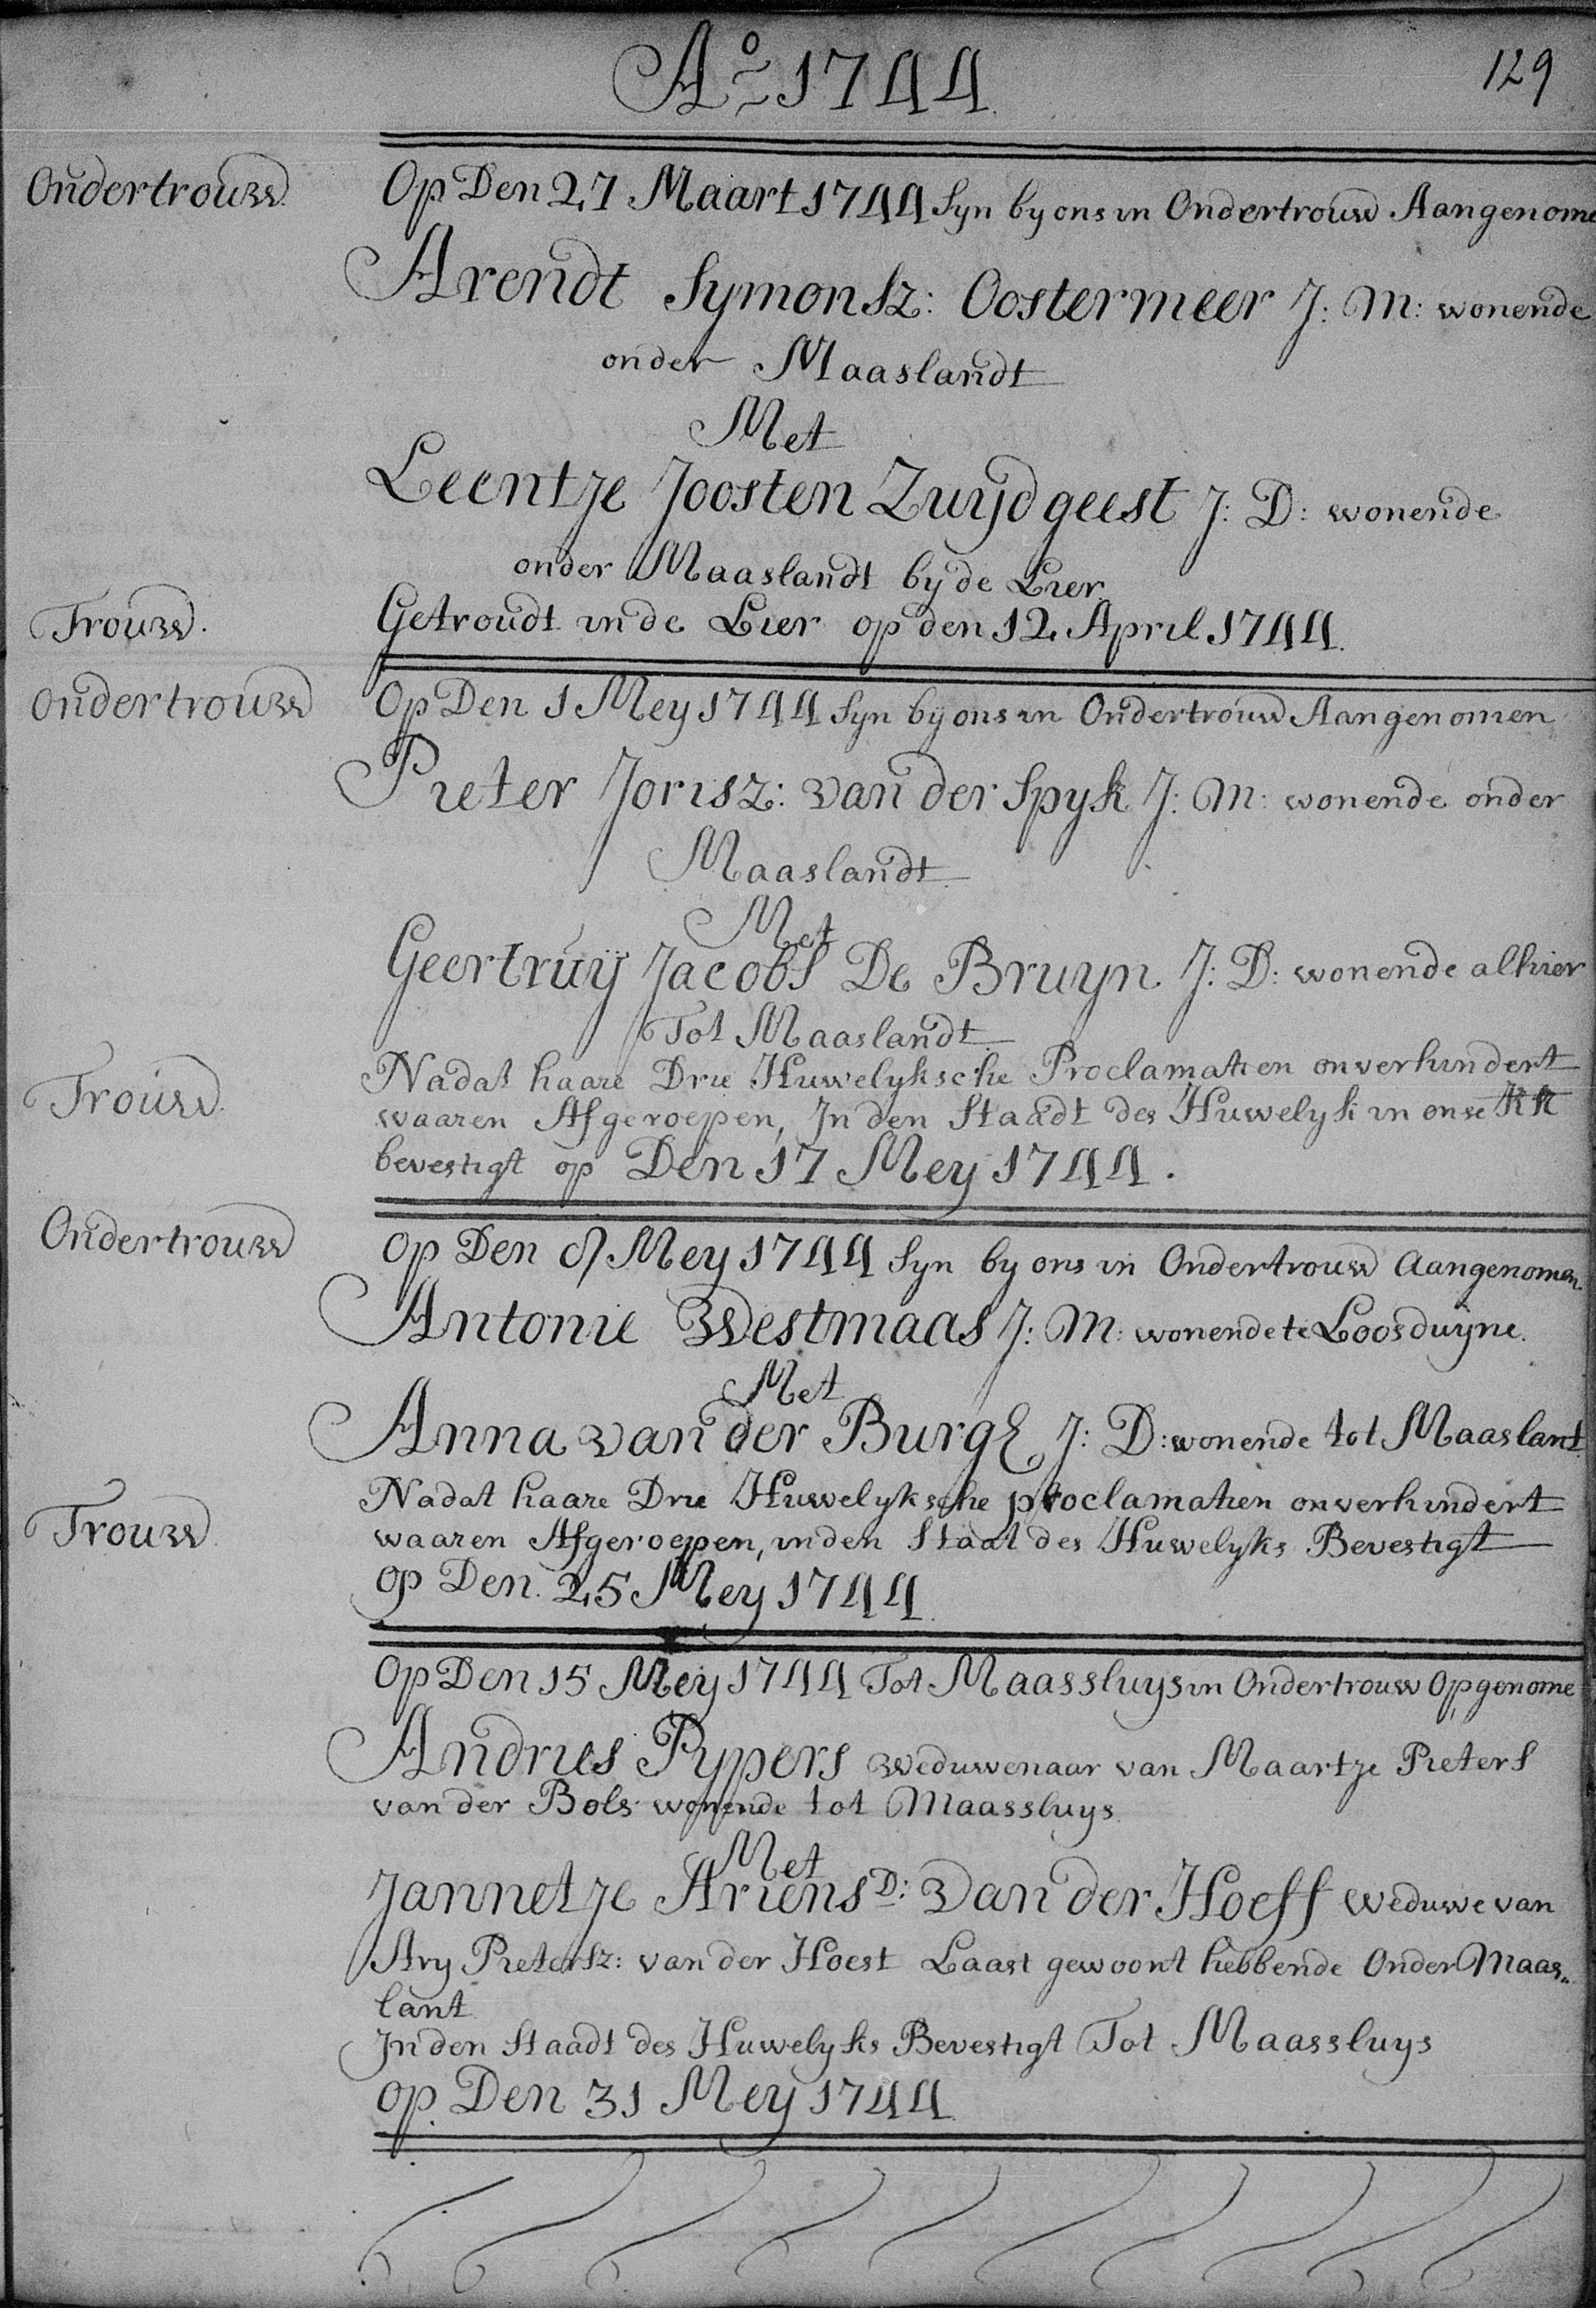 Aº 1744
129
Ondertrouw Op Den 27 Maart 1744 Syn by ons in Ondertrouw Aangenome
Arendt Symonsz: Oostermeer J: M: wonende
onder Maaslandt
Met
Leentje Joosten Zuydgeest J: D: wonende
onder Maaslandt by de Lier
Trouw. Getroudt in de Lier op den 12 April 1744
Ondertrouw Op Den 1 Mey 1744 Syn by ons in Ondertrouw Aangenomen
Pieter Jorisz: van der Spyk J: M: wonende onder
Maaslandt
Met
Geertruy Jacobs De Bruyn J: D: wonende alhier
Tot Maaslandt
Nadat haare Drie Huwelyksche Proclamatien onverhindert
Trouw waaren Afgeroepen, In den Staadt des Huwelyk in onse KK
bevestigt op Den 17 Mey 1744.
Ondertrouw Op Den Mey 1744 Syn by ons in Ondertrouw Aangenomen
Antonie Westmaas J: M: wonende te Loosduyne.
Met
Anna van der Burg J: D: wonende tot Maaslant
Nadat haare Drie Huwelyksche proclamatien onverhindert
Trouw waaren Afgeroepen, in den Staat des Huwelyks Bevestigt
op Den 25 Mey 1744
Op Den 15 Mey 1744 Tot Maassluys in Ondertrouw Opgenome
Andries Pypers weduwenaar van Maartje Pieters
van der Bols wonende tot Maassluys
Met
Jannetje Ariens D: van der Hoeff weduwe van
Ary Pietersz: van der Hoest Laast gewoont hebbende Onder Maas„
lant
In den Staadt des Huwelyks Bevestigt Tot Maassluys
op Den 31 Mey 1744